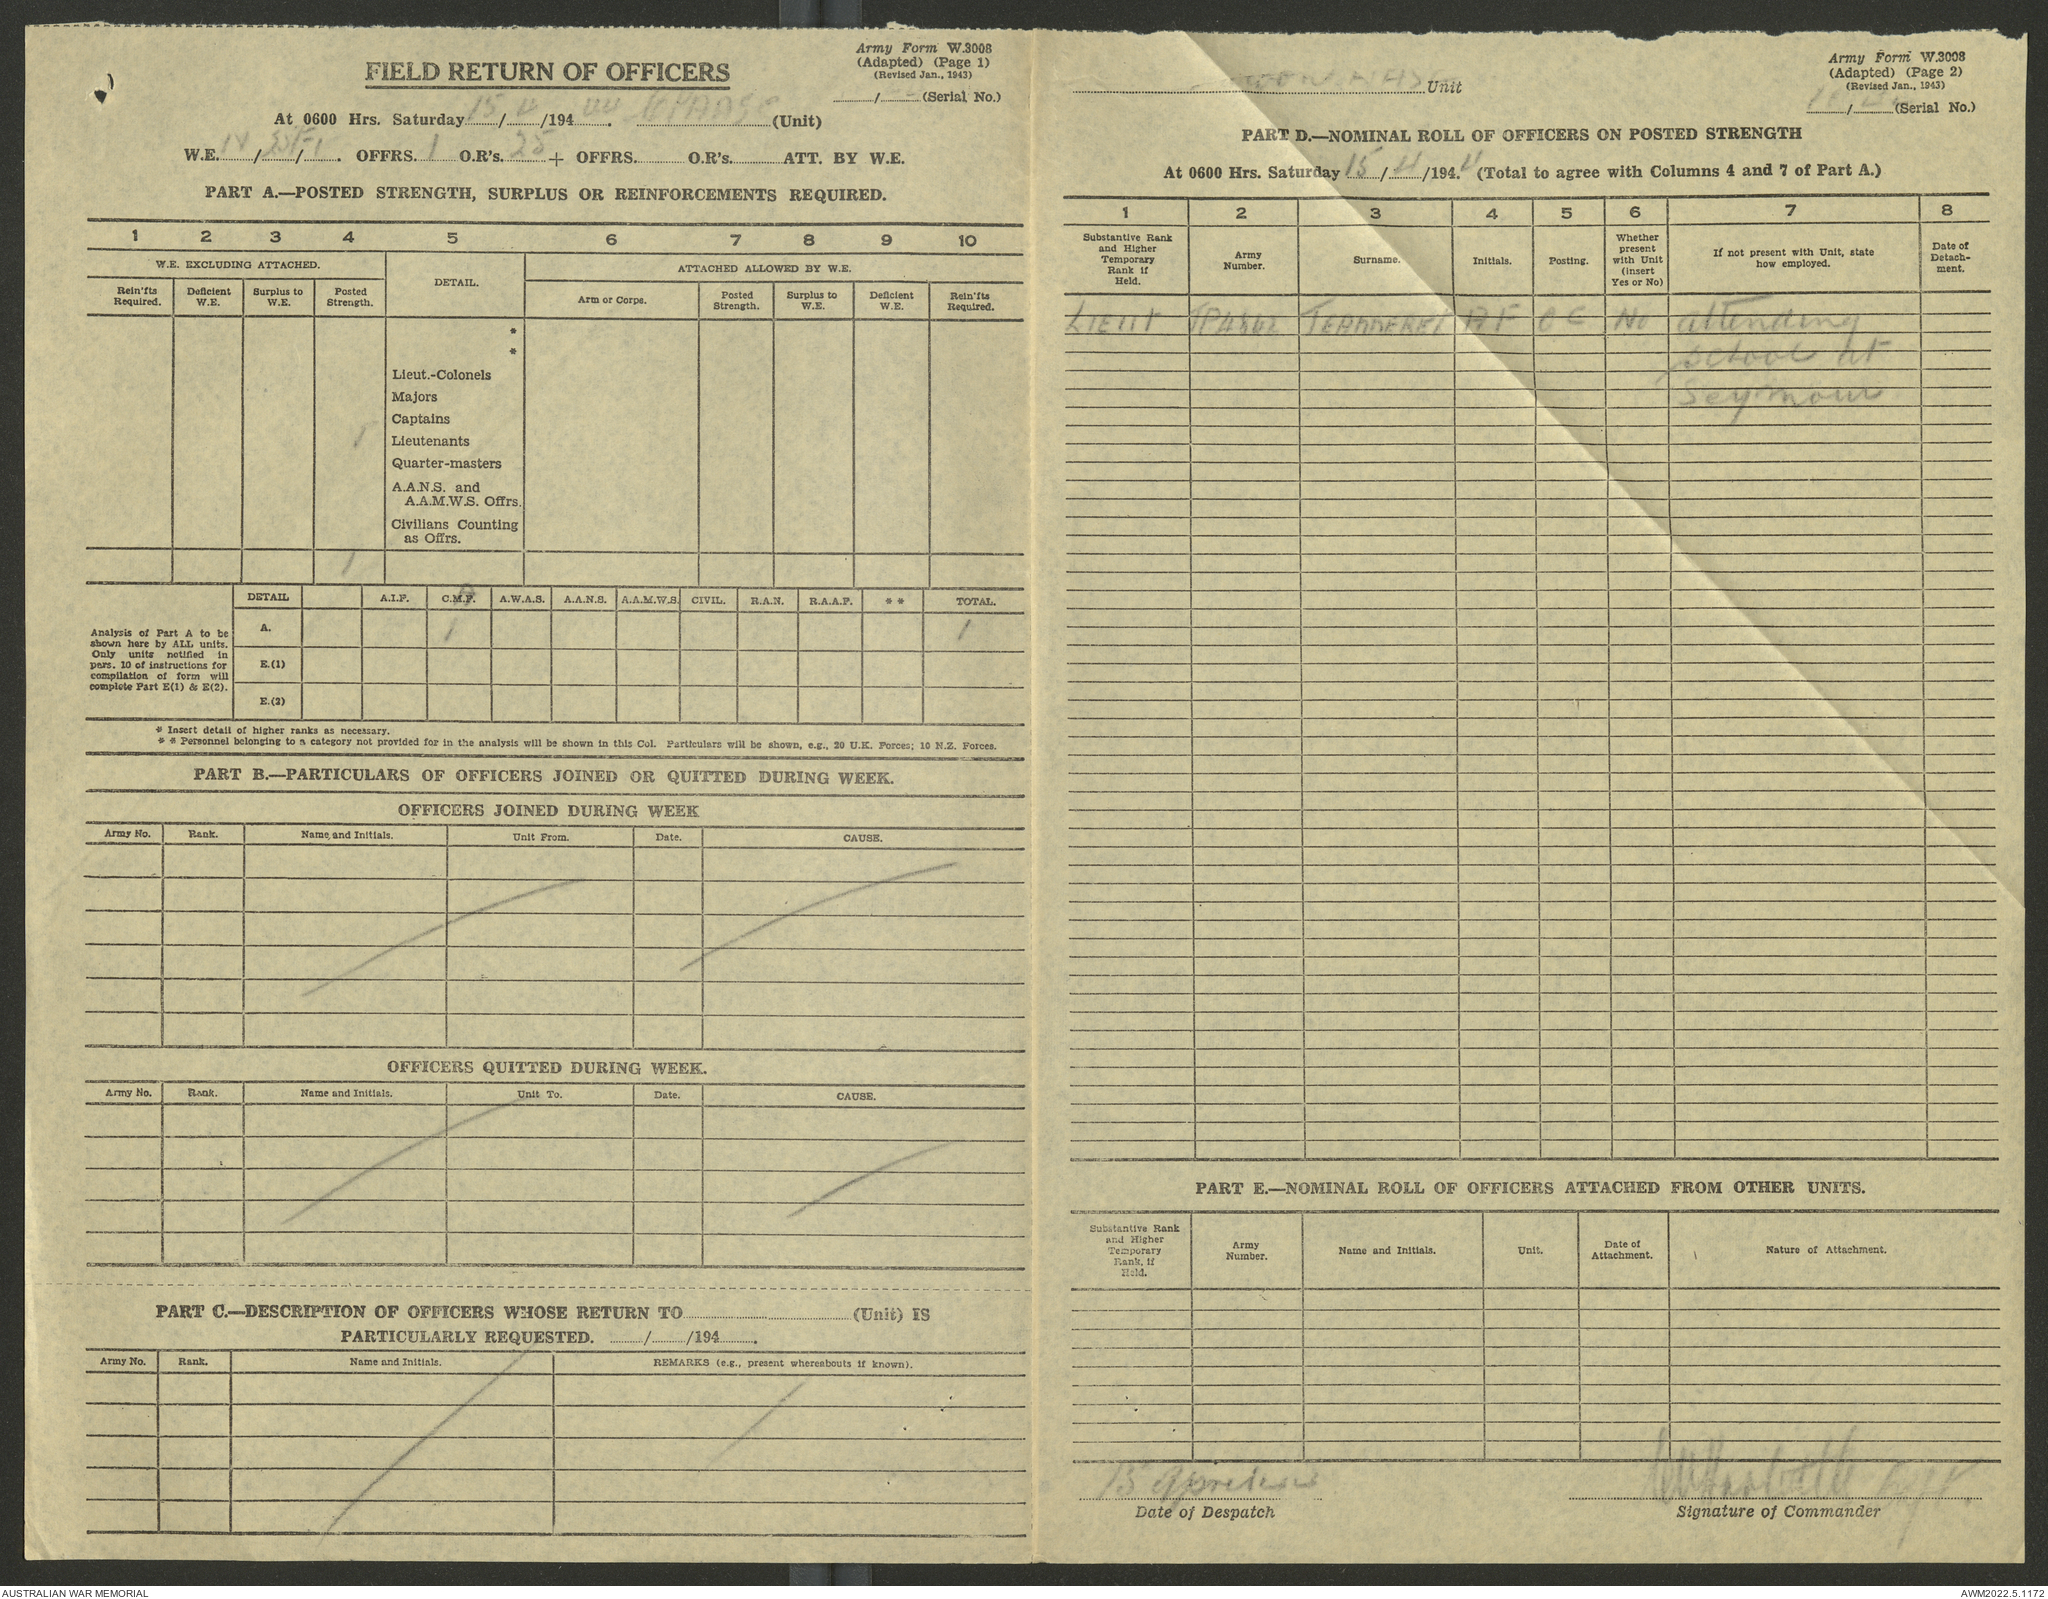 Army Form W.3008
(Adapted) (Page 1)
(Revised Jan., 1943)
FIELD RETURN OF OFFICERS
/ (Serial No.)
At 0600 Hrs. Saturday 15/4/194 (Unit)
W.E. / / . OFFRS. 1 O.R's. 25 + OFFRS. O.R's. ATT. BY W.E.
PART A.—POSTED STRENGTH, SURPLUS OR REINFORCEMENTS REQUIRED.
1 2 3 4 5 6 7 8 9 10
W.E. EXCLUDING ATTACHED. DETAIL. ATTACHED ALLOWED BY W.E.
Rein'fts Required. Deficient W.E. Surplus to W.E. Posted Strength. Arm or Corps. Posted Strength. Surplus to W.E. Deficient W.E. Rein'fts Required.
*
*
Lieut.-Colonels
Majors
Captains
1 Lieutenants
Quarter-masters
A.A.N.S. and
A.A.M.W.S. Offrs.
Civilians Counting
as Offrs.
1
DETAIL A.I.F. C.M.F. A.W.A.S. A.A.N.S. A.A.M.W.S. CIVIL. R.A.N. R.A.A.F. * * TOTAL.
A. 1 1
E.(1)
E.(2)
Analysis of Part A to be
shown here by ALL units.
Only units notified in
para. 10 of instructions for
compilation of form will
complete Part E(1) & E(2).
* Insert detail of higher ranks as necessary.
* * Personnel belonging to a category not provided for in the analysis will be shown in this Col. Particulars will be shown, e.g., 20 U.K. Forces; 10 N.Z. Forces.
PART B.—PARTICULARS OF OFFICERS JOINED OR QUITTED DURING WEEK.
OFFICERS JOINED DURING WEEK
Army No. Rank. Name and Initials. Unit From. Date. CAUSE.
OFFICERS QUITTED DURING WEEK.
Army No. Rank. Name and Initials. Unit To. Date. CAUSE.
PART C.—DESCRIPTION OF OFFICERS WHOSE RETURN TO (Unit) IS
PARTICULARLY REQUESTED. / /194 .
Army No. Rank. Name and Initials. REMARKS (e.g., present whereabouts if known).
Army Form W.3008
(Adapted) (Page 2)
(Revised Jan., 1943)
Unit
/ (Serial No.)
PART D.—NOMINAL ROLL OF OFFICERS ON POSTED STRENGTH
At 0600 Hrs. Saturday 15/4/194.4 (Total to agree with Columns 4 and 7 of Part A.)
1 2 3 4 5 6 7 8
Substantive Rank and Higher Temporary Rank if Held. Army Number. Surname. Initials. Posting. Whether present with Unit (insert Yes or No) If not present with Unit, state how employed. Date of Detach-ment.
LIEUT AF OC No attending
school at
Seymour
PART E.—NOMINAL ROLL OF OFFICERS ATTACHED FROM OTHER UNITS.
Substantive Rank and Higher Temporary Rank, if Held. Army Number. Name and Initials. Unit. Date of Attachment. Nature of Attachment.
15
Date of Despatch
Signature of Commander
AUSTRALIAN WAR MEMORIAL
AWM2022.5.1172